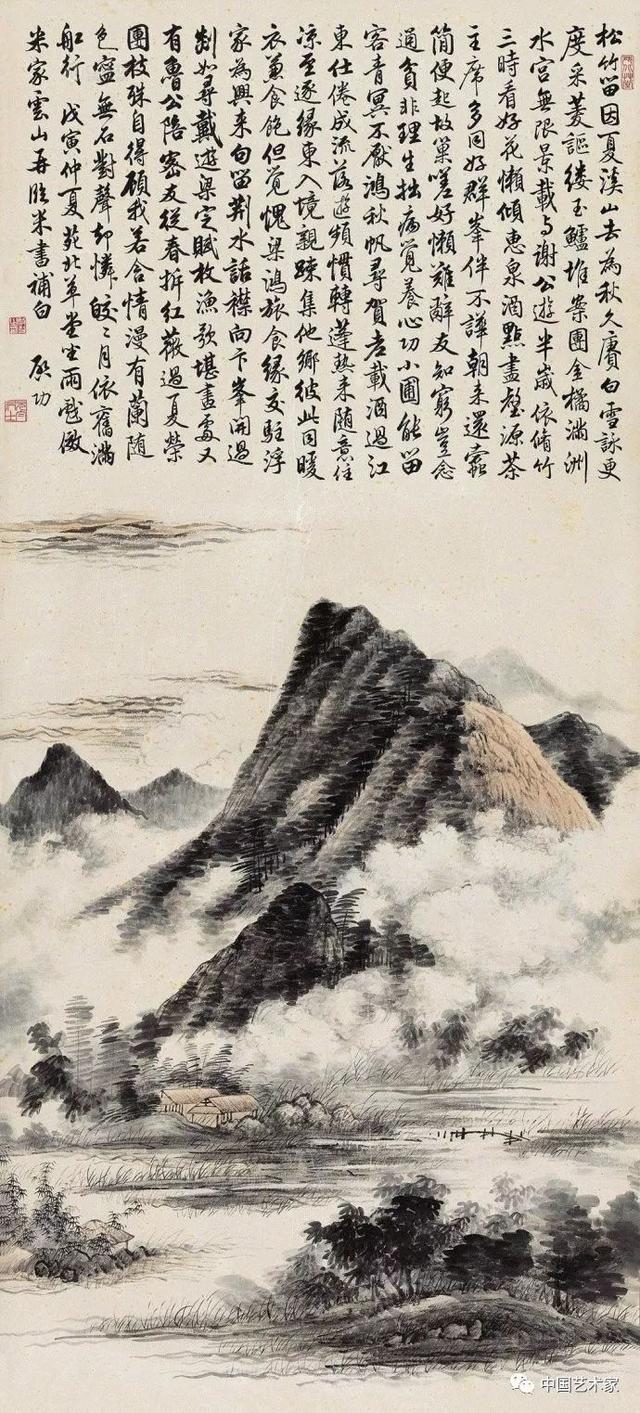 松竹留因夏溪山去為秋久賡白雪詠更
度采菱謳縷玉鱸堆案團金橘滿洲
水宮無限景載与謝公遊半歲依脩竹
三時看好花懶傾惠泉酒點盡壑源茶
主席多同好群峯伴不譁朝来還蠹
簡便起故巢嗟好懶難辭友知窮豈念
通貧非理生拙病覺養心功小圃能留
客青冥不厭鴻秋帆尋賀老載酒過江
東仕倦成流落遊頻慣轉蓬熱来随意住
凉至逐緣東入境親疎集他鄉彼此同暖
衣兼食飽但覺愧梁鴻旅食緣交駐浮
家為興来句留荆水話襟向卞峯開過
剡如尋戴遊梁定賦枚漁歌堪畫處又
有魯公陪密友從春拆紅薇過夏榮
團枝殊自得顧我若含情漫有蘭随
色寧無石對聲却憐皎〻月依舊滿
舡行 戊寅仲夏苑北草堂坐雨戲倣
米家雲山再臨米書補白 啟功
中国艺术家